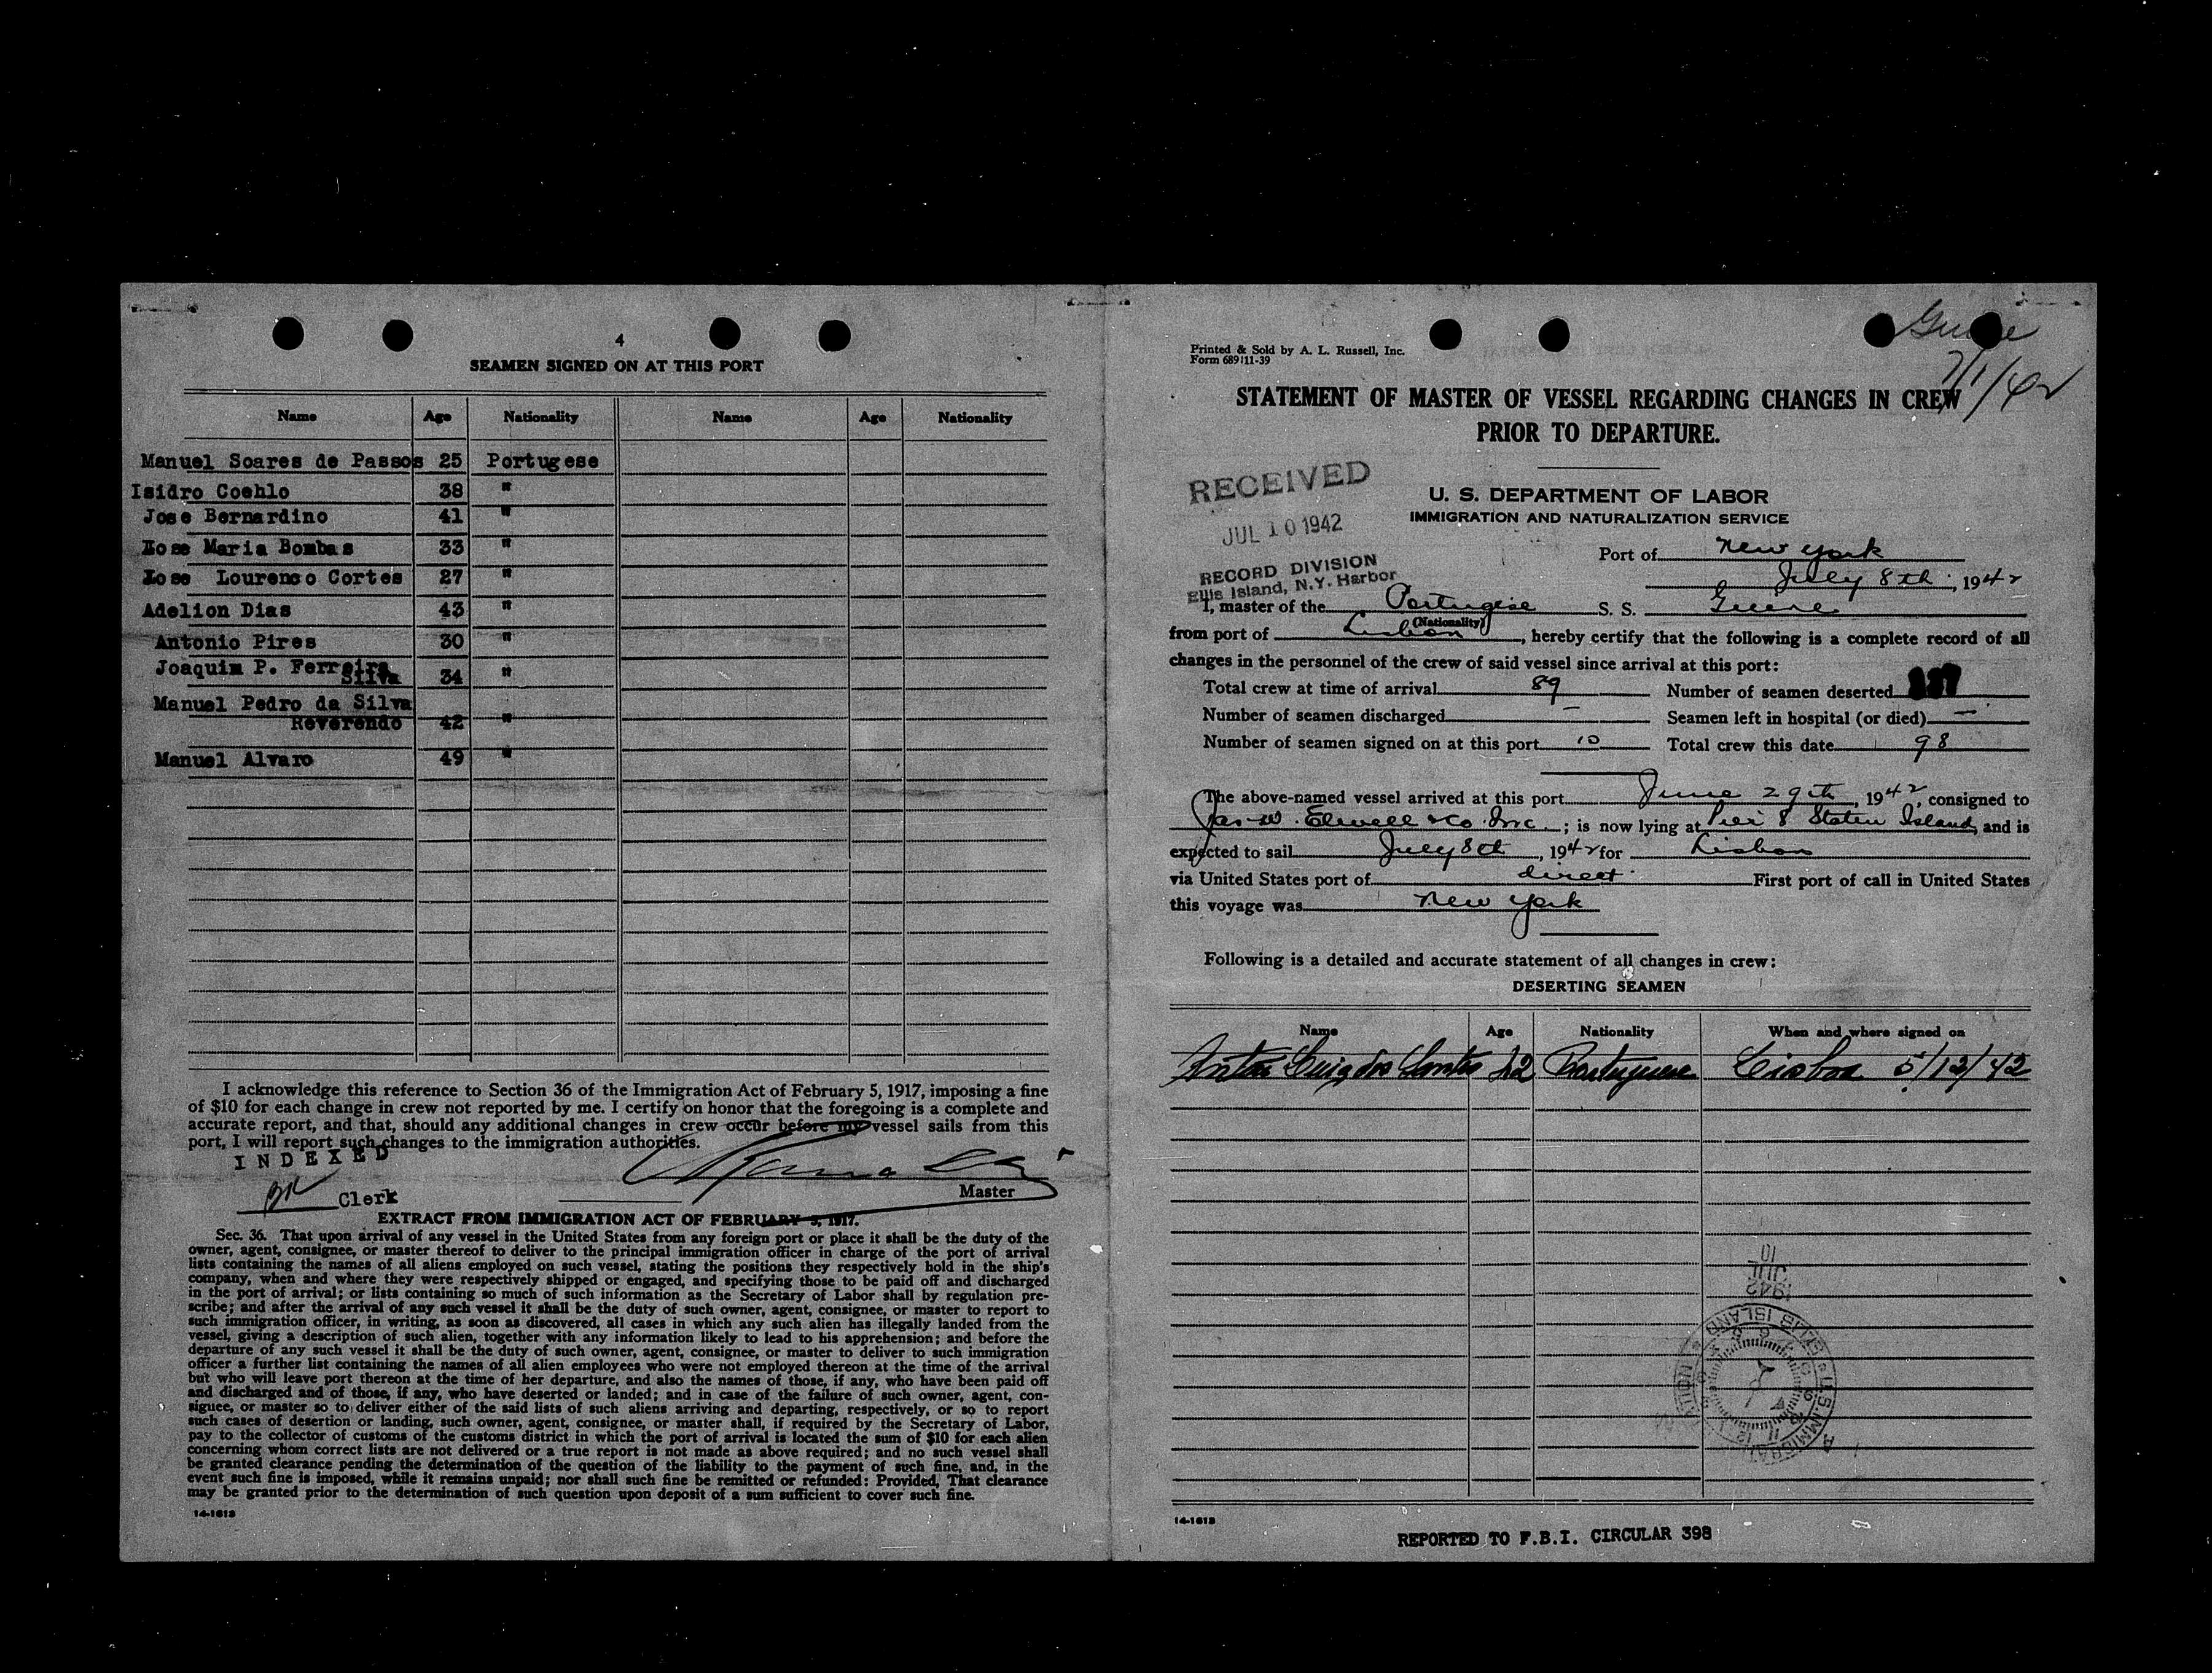 4
SEAMEN SIGNED ON AT THIS PORT
Name Age Nationality Name Age Nationality
Manuel Soares de Passos 25 Portugese
Isidro Coehlo 38 "
Jose Bernardino 41 "
Jose Maria Bombas 33 "
Jose Lourenco Cortes 27 "
Adelion Dias 43 "
Antonio Pires 30 "
Joaquim P. Ferreira
Silva 34 "
Manuel Pedro da Silva
Reverendo 42 "
Manuel Alvaro 49 "
I acknowledge this reference to Section 36 of the Immigration Act of February 5, 1917, imposing a fine
of $10 for each change in crew not reported by me. I certify on honor that the foregoing is a complete and
accurate report, and that, should any additional changes in crew occur before my vessel sails from this
port, I will report such changes to the immigration authorities.
INDEXED
BK Clerk
Master
EXTRACT FROM IMMIGRATION ACT OF FEBRUARY 5, 1917.
Sec. 36. That upon arrival of any vessel in the United States from any foreign port or place it shall be the duty of the
owner, agent, consignee, or master thereof to deliver to the principal immigration officer in charge of the port of arrival
lists containing the names of all aliens employed on such vessel, stating the positions they respectively hold in the ship's
company, when and where they were respectively shipped or engaged, and specifying those to be paid off and discharged
in the port of arrival; or lists containing so much of such information as the Secretary of Labor shall by regulation pre-
scribe; and after the arrival of any such vessel it shall be the duty of such owner, agent, consignee, or master to report to
such immigration officer, in writing, as soon as discovered, all cases in which any such alien has illegally landed from the
vessel, giving a description of such alien, together with any information likely to lead to his apprehension; and before the
departure of any such vessel it shall be the duty of such owner, agent, consignee, or master to deliver to such immigration
officer a further list containing the names of all alien employees who were not employed thereon at the time of the arrival
but who will leave port thereon at the time of her departure, and also the names of those, if any, who have been paid off
and discharged and of those, if any, who have deserted or landed; and in case of the failure of such owner, agent, con-
signee, or master so to deliver either of the said lists of such aliens arriving and departing, respectively, or so to report
such cases of desertion or landing, such owner, agent, consignee, or master shall, if required by the Secretary of Labor,
pay to the collector of customs of the customs district in which the port of arrival is located the sum of $10 for each alien
concerning whom correct lists are not delivered or a true report is not made as above required; and no such vessel shall
be granted clearance pending the determination of the question of the liability to the payment of such fine, and, in the
event such fine is imposed, while it remains unpaid; nor shall such fine be remitted or refunded: Provided, That clearance
may be granted prior to the determination of such question upon deposit of a sum sufficient to cover such fine.
14-1613
Guine
7/1/42
Printed & Sold by A. L. Russell, Inc.
Form 689 11-39
STATEMENT OF MASTER OF VESSEL REGARDING CHANGES IN CREW
PRIOR TO DEPARTURE.
RECEIVED
JUL 10 1942
RECORD DIVISION
Ellis Island, N.Y. Harbor
U. S. DEPARTMENT OF LABOR
IMMIGRATION AND NATURALIZATION SERVICE
Port of New York
July 8th, 1942
I, master of the Portugese S. S. Guine
(Nationality)
from port of Lisbon, hereby certify that the following is a complete record of all
changes in the personnel of the crew of said vessel since arrival at this port:
Total crew at time of arrival 89 Number of seamen deserted
Number of seamen discharged — Seamen left in hospital (or died) —
Number of seamen signed on at this port 10 Total crew this date 98
The above-named vessel arrived at this port June 29th, 1942, consigned to
Jas. W. Elwell & Co. Inc.; is now lying at Pier 8 Staten Island, and is
expected to sail July 8th, 1942 for Lisbon
via United States port of direct First port of call in United States
this voyage was New York
Following is a detailed and accurate statement of all changes in crew:
DESERTING SEAMEN
Name Age Nationality When and where signed on
dos Santos 42 Portuguese Lisboa 5/12/42
1942
JUL
10
U.S. IMMIGRATION
ELLIS ISLAND
14-1613
REPORTED TO F.B.I. CIRCULAR 398